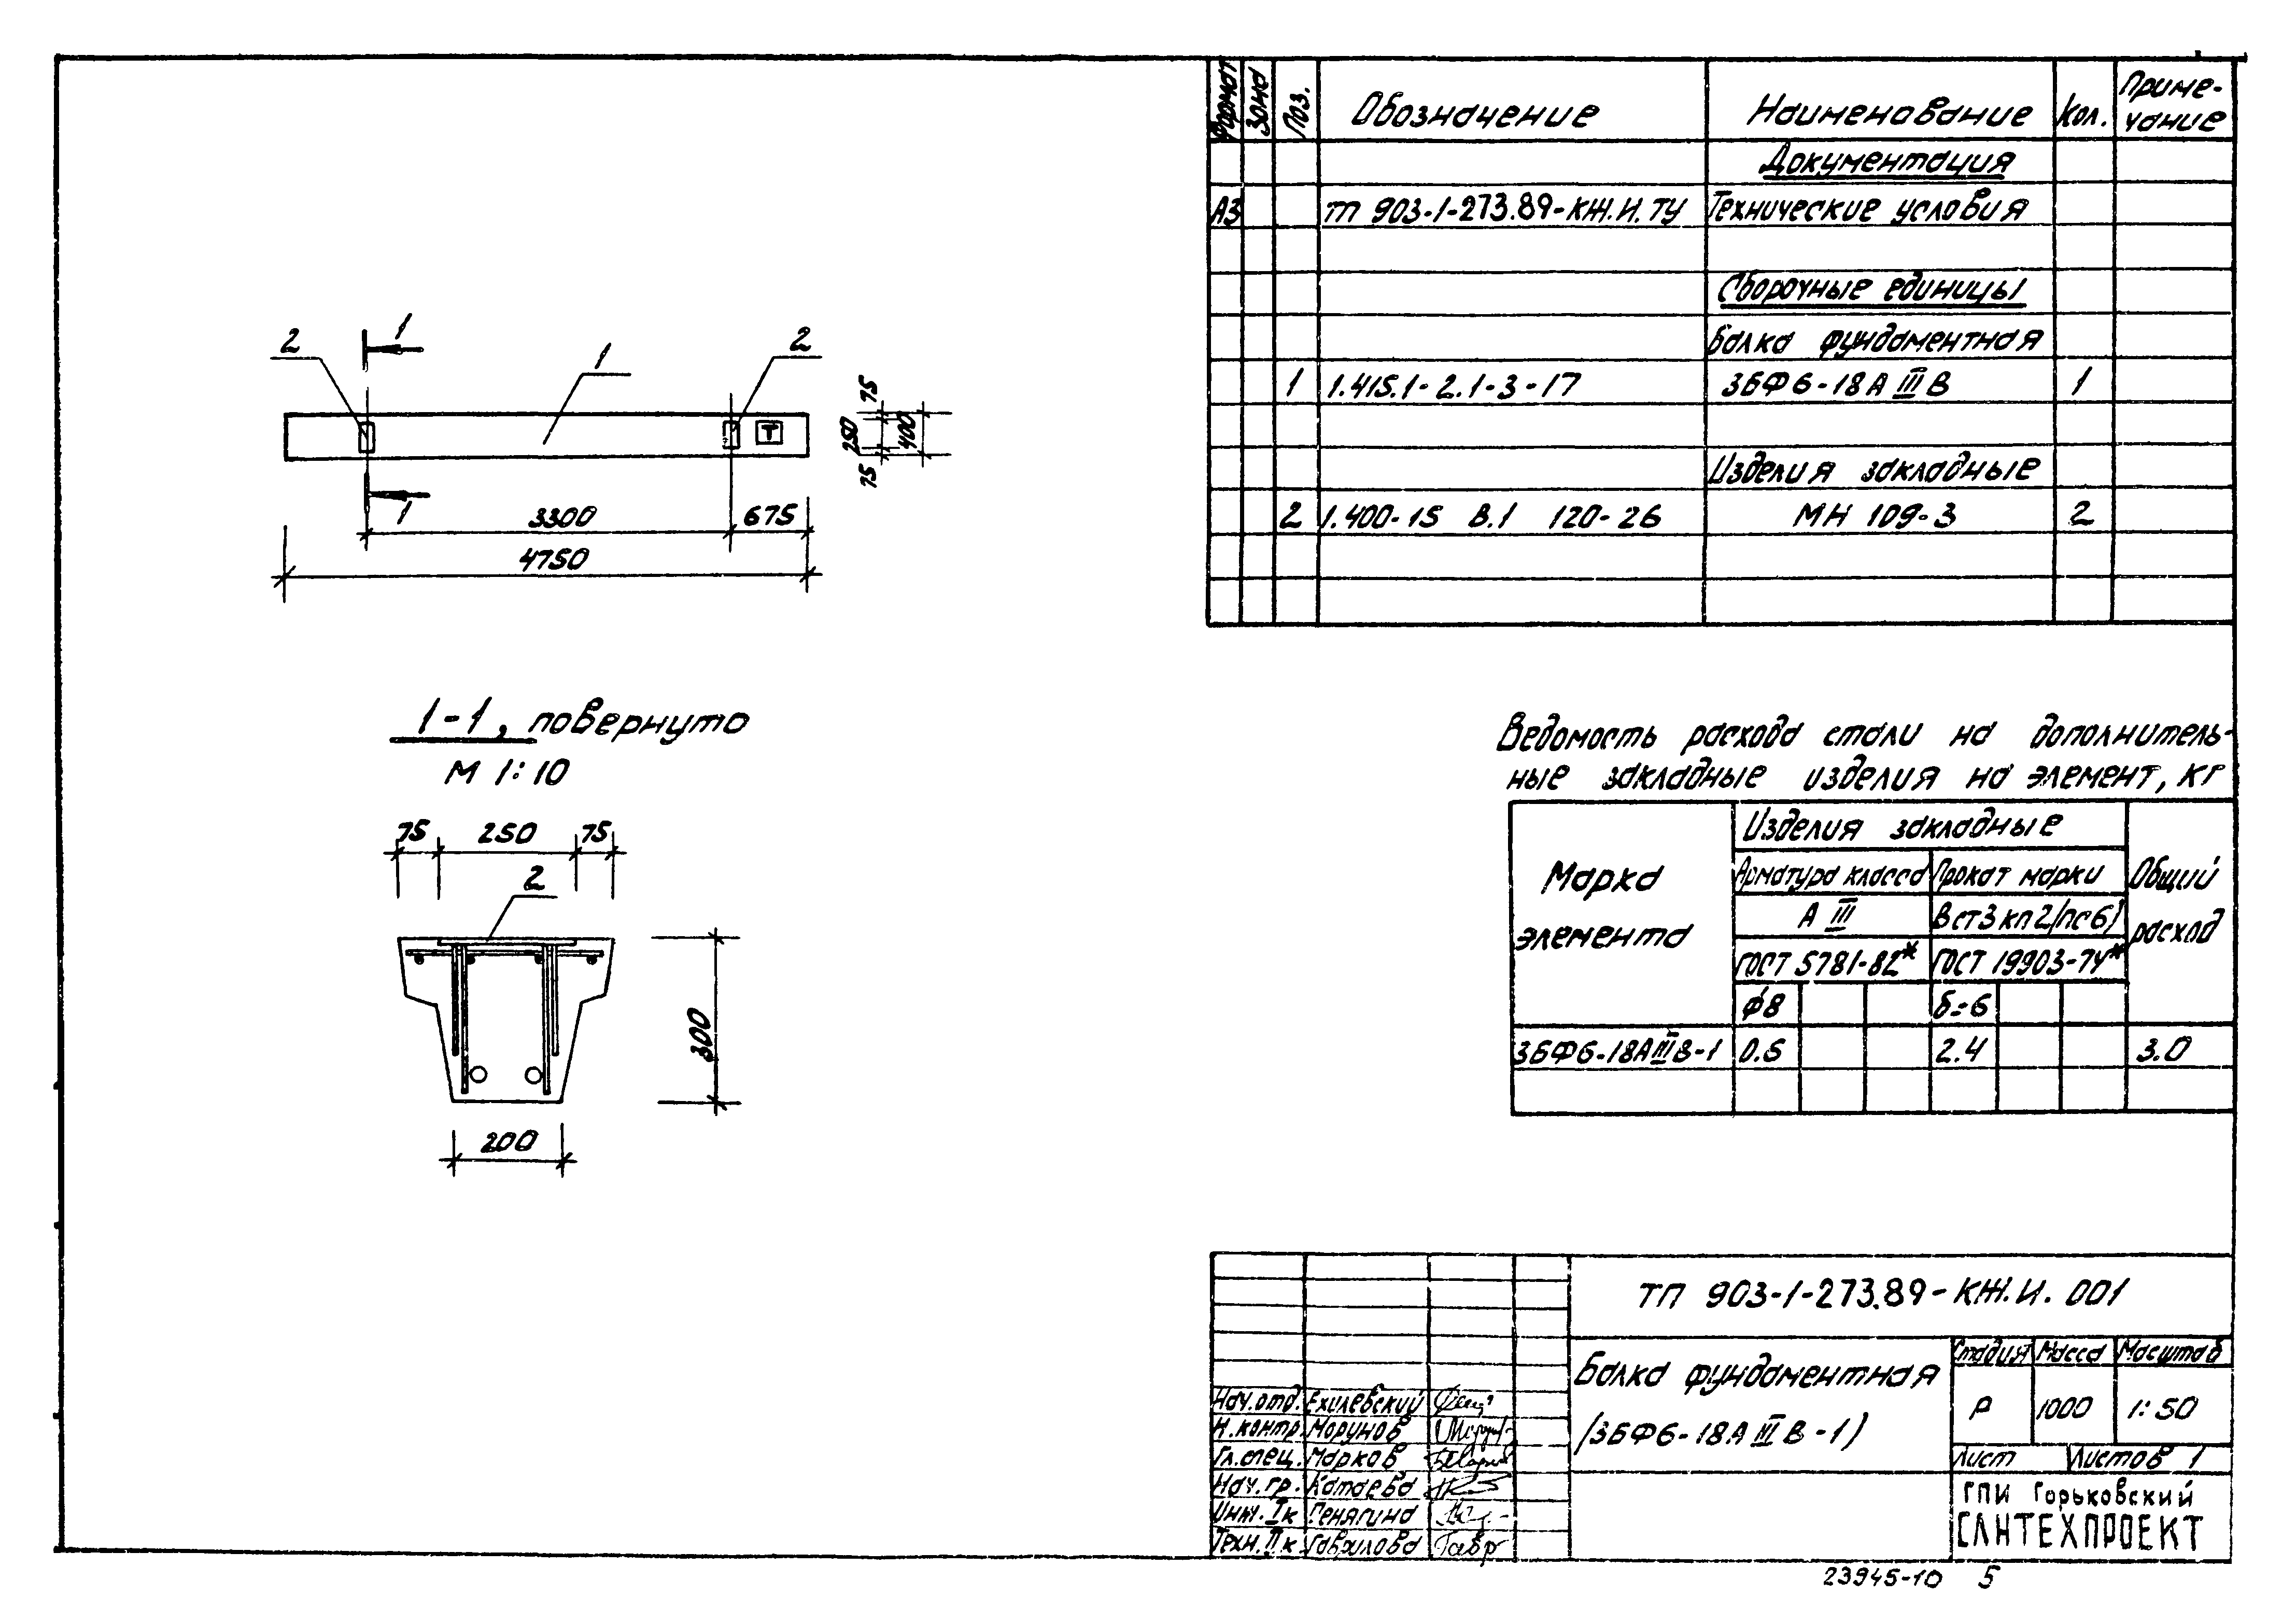 Формат Зона Поз. Обозначение Наименование Кол. Приме-
чание
Документация
А3 ТП 903-1-273.89-КЖ.И.ТУ Технические условия
Сборочные единицы
Балка фундаментная
1 1.415.1-2.1-3-17 3БФ6-18АIIIВ 1
Изделия закладные
2 1.400-15 В.1 120-26 МН 109-3 2
1
2 1 2
Т
75
250
75
400
1
3300 675
4750
1-1, повернуто
М 1:10
75 250 75
2
300
200
Ведомость расхода стали на дополнитель-
ные закладные изделия на элемент, кг
Марка
элемента
Изделия закладные
Общий
расход
Арматура класса Прокат марки
А III ВСт3кп2/пс6/
ГОСТ 5781-82* ГОСТ 19903-74*
ф8 δ=6
3БФ6-18АIIIВ-1 0.6 2.4 3.0
ТП 903-1-273.89-КЖ.И.001
Балка фундаментная
/3БФ6-18АIIIВ-1/
Стадия Масса Масштаб
Р 1000 1:50
Лист Листов 1
ГПИ Горьковский
САНТЕХПРОЕКТ
Нач.отд. Ехилевский
Н.контр. Морунов
Гл.спец. Марков
Нач.гр. Катаева
Инж.Iк Генягина
Техн.IIк Гаврилова
23945-10 5